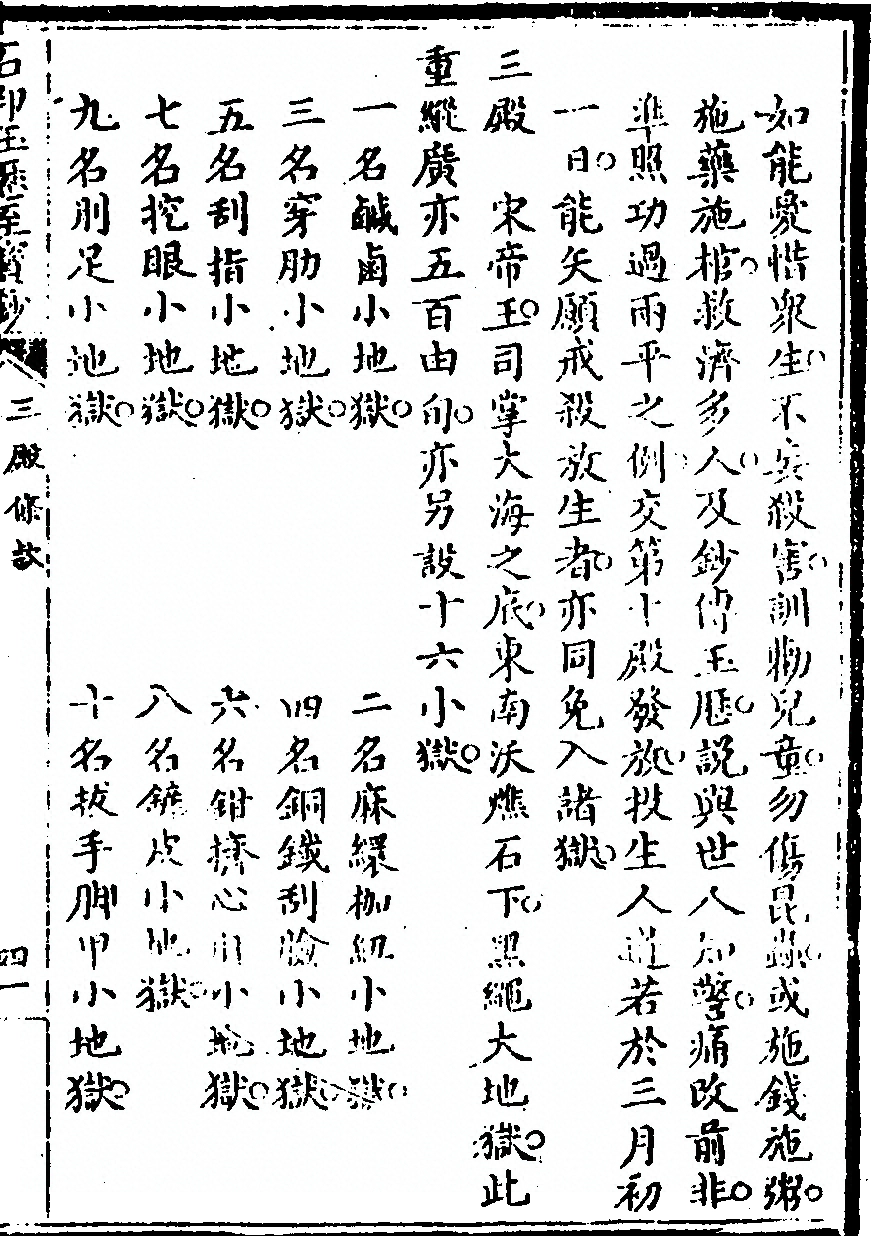 如能愛惜衆生不妄殺害訓勅兒童勿傷昆蟲或施錢施粥
施藥施棺救濟多人及鈔傳玉歷說與世人知警痛改前非
準照功過兩平之例交第十殿發放投生人道若於三月初
一日能矢願戒殺放生者亦同免入諸獄
三殿 宋帝王司掌大海之底東南沃燋石下黑繩大地獄此
重縱廣亦五百由旬亦另設十六小獄
一名鹹鹵小地獄 二名麻繯枷紐小地獄
三名穿肋小地獄 四名銅鐵刮臉小地獄
五名刮指小地獄 六名鉗擠心肝小地獄
七名挖眼小地獄 八名鏟皮小地獄
九名刖足小地獄 十名拔手脚甲小地獄
石印玉歷至寶鈔 三殿條款 四一